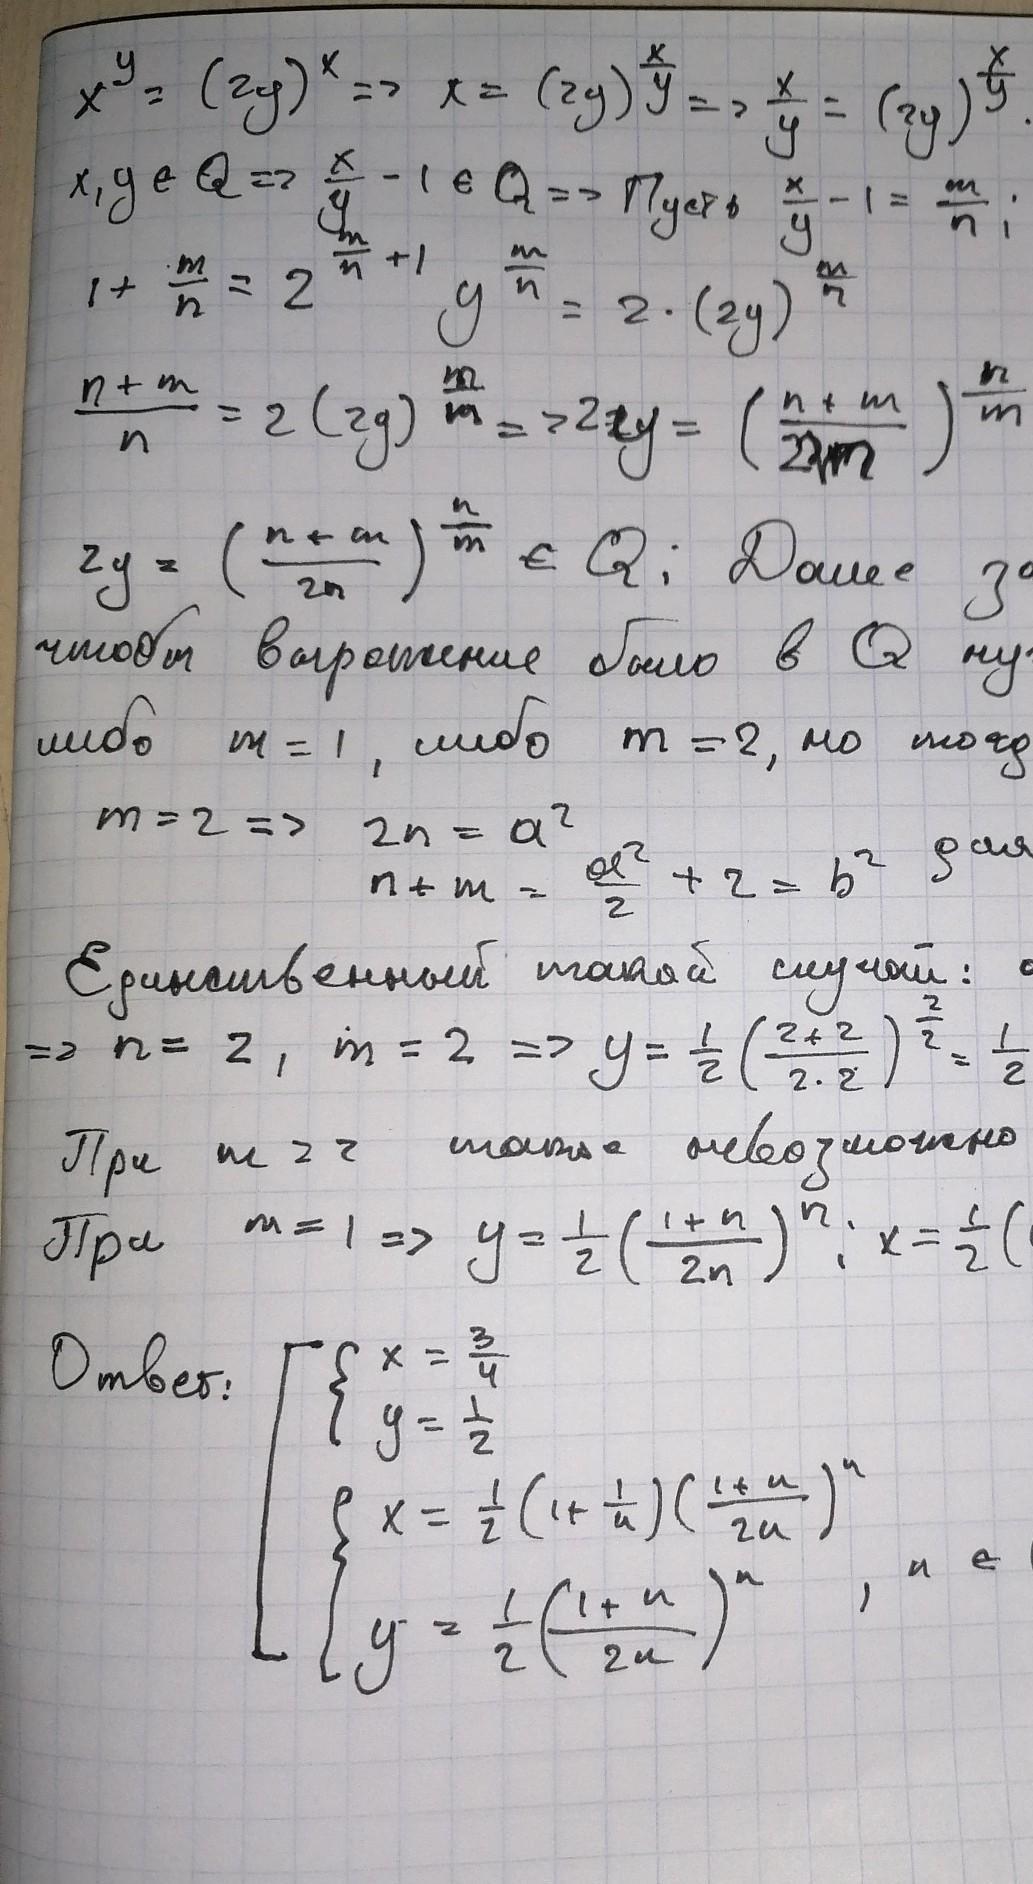 x^y = (2y)^x => x = (2y)^{x/y} => x/y = (2y)^{x/y}
x, y ∈ Q => x/y - 1 ∈ Q => Пусть x/y - 1 = m/n;
1 + m/n = 2^{m/n + 1} y^{m/n} = 2 · (2y)^{m/n}
(n + m)/n = 2 (2y)^{m/n} => 2y = ((n + m)/2n)^{n/m}
2y = ((n + m)/2n)^{n/m} ∈ Q; Далее
чтобы выражение было в Q
либо m = 1, либо m = 2, но
m = 2 => 2n = a²
n + m = a²/2 + 2 = b² для
Единственный такой случай:
=> n = 2, m = 2 => y = 1/2 ((2 + 2)/(2·2))^{2/2} = 1/2
При m > 2 такое невозможно
При m = 1 => y = 1/2 ((1 + n)/2n)^n; x = 1/2 (
Ответ: x = 3/4
y = 1/2
x = 1/2 (1 + 1/n) ((1 + n)/2n)^n
y = 1/2 ((1 + n)/2n)^n , n ∈